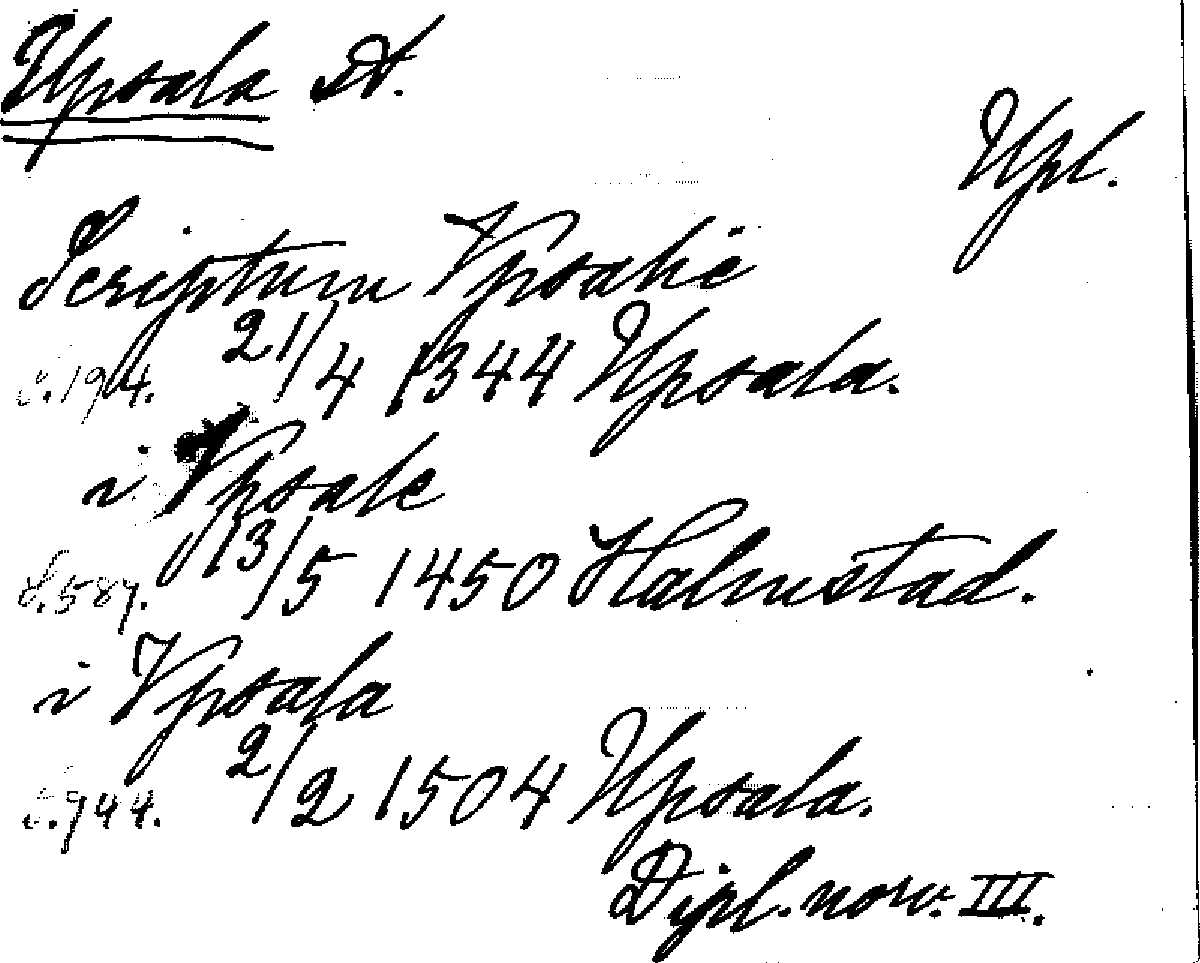 Upsala st.
Upl.
Scriptum Vpsalie
s. 194. 21/4 1344 Upsala.
i Vpsale
s. 587. 13/5 1450 Halmstad.
i Vpsala
s. 744. 2/2 1504 Upsala.
Dipl. norv. III.